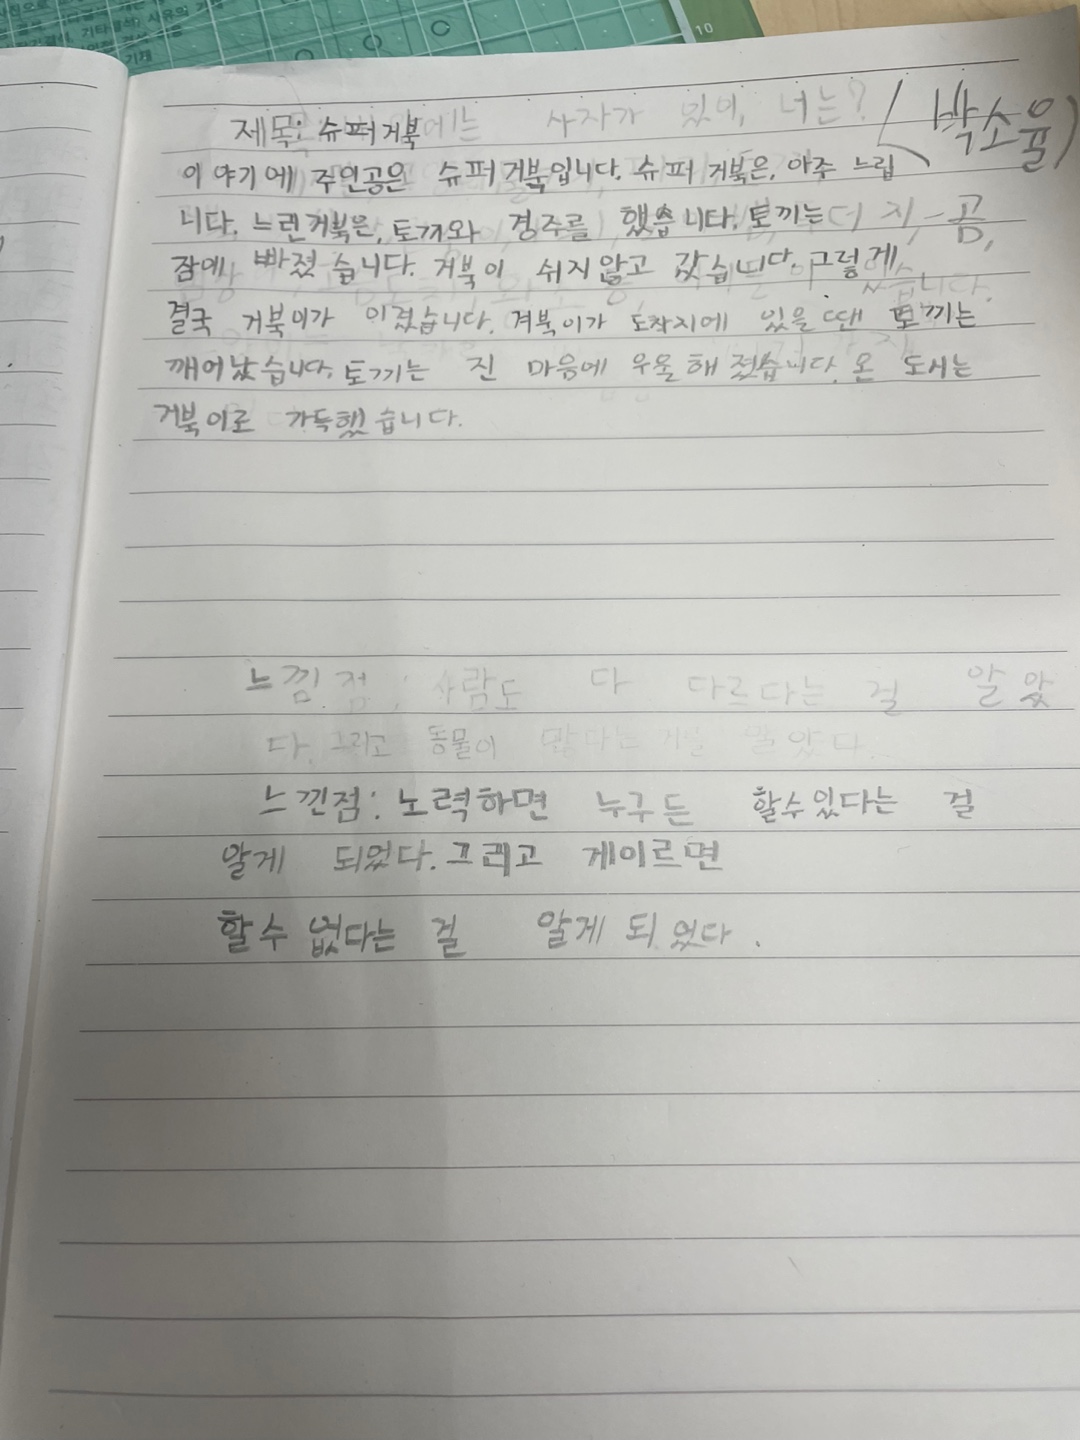 10
제목: 슈퍼거북
사자가 있어, 너는? (박소율)
이야기에 주인공은 슈퍼거북입니다. 슈퍼 거북은, 아주 느립
니다. 느린거북은, 토끼와 경주를 했습니다. 토끼는
잠에 빠졌습니다. 거북이 쉬지않고 갔습니다. 그렇게
결국 거북이가 이겼습니다. 거북이가 도착지에 있을 땐 토끼는
깨어났습니다. 토끼는 진 마음에 우울해졌습니다. 온 도시는
거북이로 가득했습니다.
느낌점: 사람도 다 다르다는 걸 알았
다. 그리고 동물이 많다는 거를 알았다.
느낀점: 노력하면 누구든 할수있다는 걸
알게 되었다. 그리고 게이르면
할수 없다는 걸 알게 되었다.